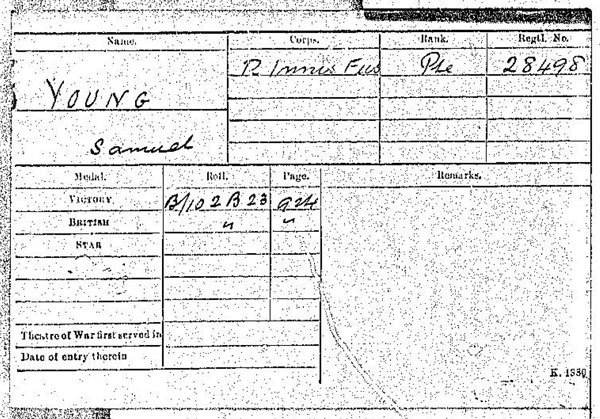 Name. Corps. Rank. Regtl. No.
R. Innis Fus Pte 28498
YOUNG
Samuel
Medal. Roll. Page. Remarks.
VICTORY B/102 B 23 924
BRITISH " "
STAR
Theatre of War first served in
Date of entry therein
K. 1380